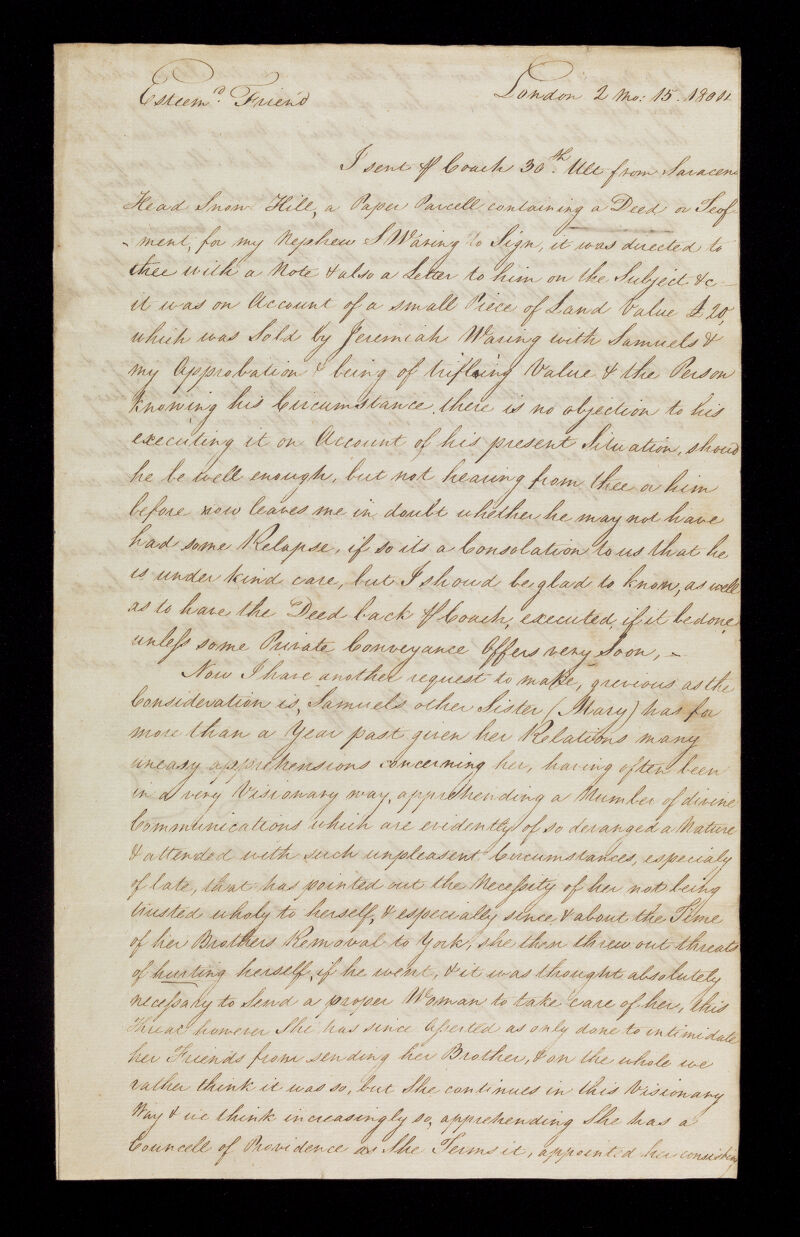 Esteem.d Friend London 2 mo: 15. 1804
I sent ⅌ Coach 30.th Ult from Saracens
Head Snow Hill, a Paper Parcell containing a Deed or Feof-
ment, for my Nephew S Waring to Sign, it was directed to
thee with a Note & also a Letter to him on the Subject &c—
it was on Account of a small Piece of Land Value £20,
which was Sold by Jeremiah Waring with Samuels &
my Approbation & being of trifling Value & the Person
knowing his Circumstance there is no objection to his
executing it on Account of his present Situation, should
he be well enough, but not hearing from thee or him
before now leaves me in doubt whether he may not have
had some Relapse, if so its a Consolation to us that he
is under kind care, but I should be glad to know, as well
as to have the Deed back ⅌ Coach, executed, if it be done,
unless some Private Conveyance Offers very Soon, —
Now I have another request to make, grevious as the
Consideration is, Samuels other Sister (Mary) has for
more than a Year past given her Relations many
uneasy apprehensions concerning her, having often been
in a very Visionary way, apprehending a Number of divine
Communications which are evidently of so deranged a Nature
& attended with such unpleasent Circumstances, especialy
of late, that has pointed out the Necessity of her not being
trusted wholy to herself, & especially since & about the Time
of her Brothers Removal to York, she then threw out threats
of hurting herself, if he went, & it was thought absolutely
necessary to Send a proper Woman to take care of her, this
Threat however She has since Aserted as only done to intimidate
her Friends from sending her Brother, & on the whole we
rather think it was so, but She continues in this Visionary
Way & we think increasingly so, apprehending She has a
Councell of Providence as She Terms it, appointed her consisting